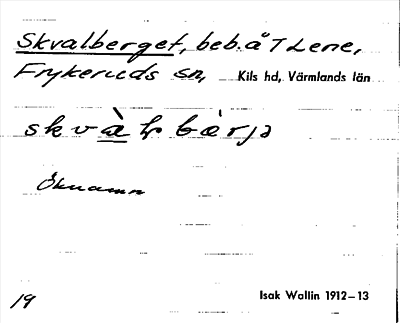 Skvalberget, beb. å T Lene,
Frykeruds sn, Kils hd, Värmlands län
Öknamn
19 Isak Wallin 1912–13